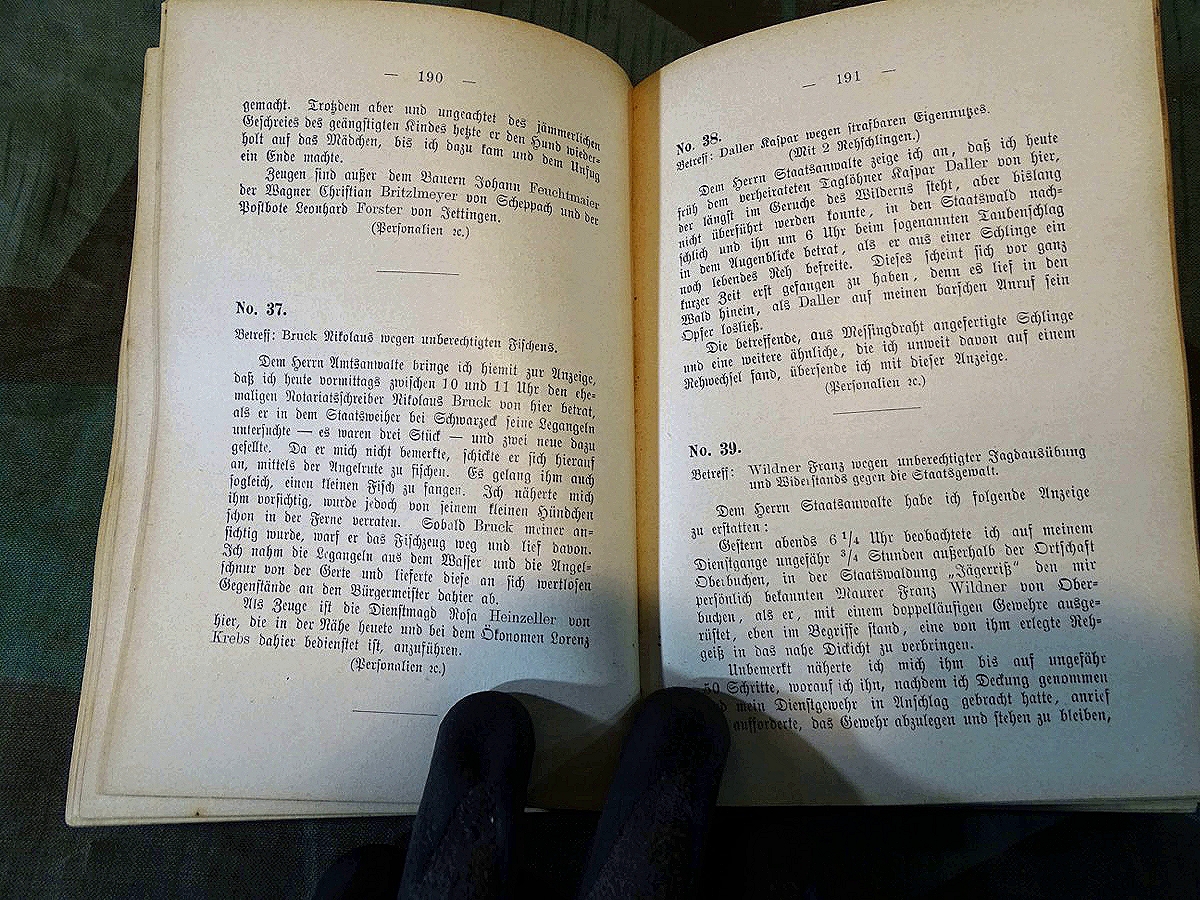 — 190 —
gemacht. Trotzdem aber und ungeachtet des jämmerlichen
Geschreies des geängstigten Kindes hetzte er den Hund wieder-
holt auf das Mädchen, bis ich dazu kam und dem Unfug
ein Ende machte.
Zeugen sind außer dem Bauern Johann Feuchtmaier
der Wagner Christian Britzlmeyer von Scheppach und der
Postbote Leonhard Forster von Jettingen.
(Personalien ꝛc.)
No. 37.
Betreff: Bruck Nikolaus wegen unberechtigten Fischens.
Dem Herrn Amtsanwalte bringe ich hiemit zur Anzeige,
daß ich heute vormittags zwischen 10 und 11 Uhr den ehe-
maligen Notariatsschreiber Nikolaus Bruck von hier betrat,
als er in dem Staatsweiher bei Schwarzeck seine Legangeln
untersuchte — es waren drei Stück — und zwei neue dazu
gesellte. Da er mich nicht bemerkte, schickte er sich hierauf
an, mittels der Angelrute zu fischen. Es gelang ihm auch
sogleich, einen kleinen Fisch zu fangen. Ich näherte mich
ihm vorsichtig, wurde jedoch von seinem kleinen Hündchen
schon in der Ferne verraten. Sobald Bruck meiner an-
sichtig wurde, warf er das Fischzeug weg und lief davon.
Ich nahm die Legangeln aus dem Wasser und die Angel-
schnur von der Gerte und lieferte diese an sich wertlosen
Gegenstände an den Bürgermeister dahier ab.
Als Zeuge ist die Dienstmagd Rosa Heinzeller von
hier, die in der Nähe heuete und bei dem Ökonomen Lorenz
Krebs dahier bedienstet ist, anzuführen.
(Personalien ꝛc.)
— 191 —
No. 38.
Betreff: Daller Kaspar wegen strafbaren Eigennutzes.
(Mit 2 Rehschlingen.)
Dem Herrn Staatsanwalte zeige ich an, daß ich heute
früh dem verheirateten Taglöhner Kaspar Daller von hier,
der längst im Geruche des Wilderns steht, aber bislang
nicht überführt werden konnte, in den Staatswald nach-
schlich und ihn um 6 Uhr beim sogenannten Taubenschlag
in dem Augenblicke betrat, als er aus einer Schlinge ein
noch lebendes Reh befreite. Dieses scheint sich vor ganz
kurzer Zeit erst gefangen zu haben, denn es lief in den
Wald hinein, als Daller auf meinen barschen Anruf sein
Opfer losließ.
Die betreffende, aus Messingdraht angefertigte Schlinge
und eine weitere ähnliche, die ich unweit davon auf einem
Rehwechsel fand, übersende ich mit dieser Anzeige.
(Personalien ꝛc.)
No. 39.
Betreff: Wildner Franz wegen unberechtigter Jagdausübung
und Widerstands gegen die Staatsgewalt.
Dem Herrn Staatsanwalte habe ich folgende Anzeige
zu erstatten:
Gestern abends 6 1/4 Uhr beobachtete ich auf meinem
Dienstgange ungefähr 3/4 Stunden außerhalb der Ortschaft
Oberbuchen, in der Staatswaldung „Jägerriß“ den mir
persönlich bekannten Maurer Franz Wildner von Ober-
buchen, als er, mit einem doppelläufigen Gewehre ausge-
rüstet, eben im Begriffe stand, eine von ihm erlegte Reh-
geiß in das nahe Dickicht zu verbringen.
Unbemerkt näherte ich mich ihm bis auf ungefähr
50 Schritte, worauf ich ihn, nachdem ich Deckung genommen
mein Dienstgewehr in Anschlag gebracht hatte, anrief
aufforderte, das Gewehr abzulegen und stehen zu bleiben,